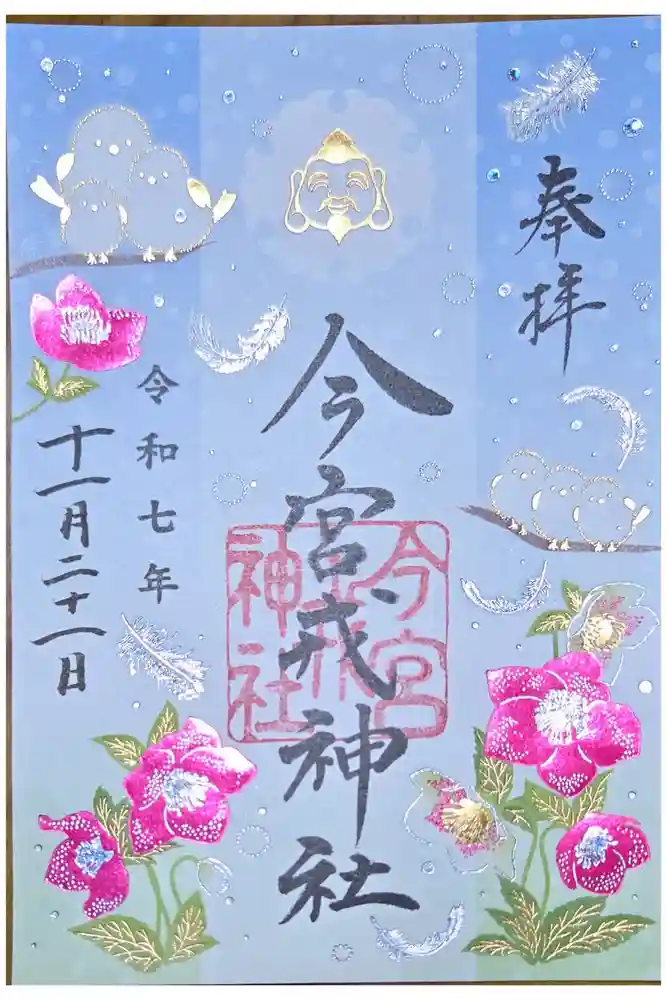 奉拝
今宮戎神社
今宮
戎
神社
令和七年
十一月二十一日